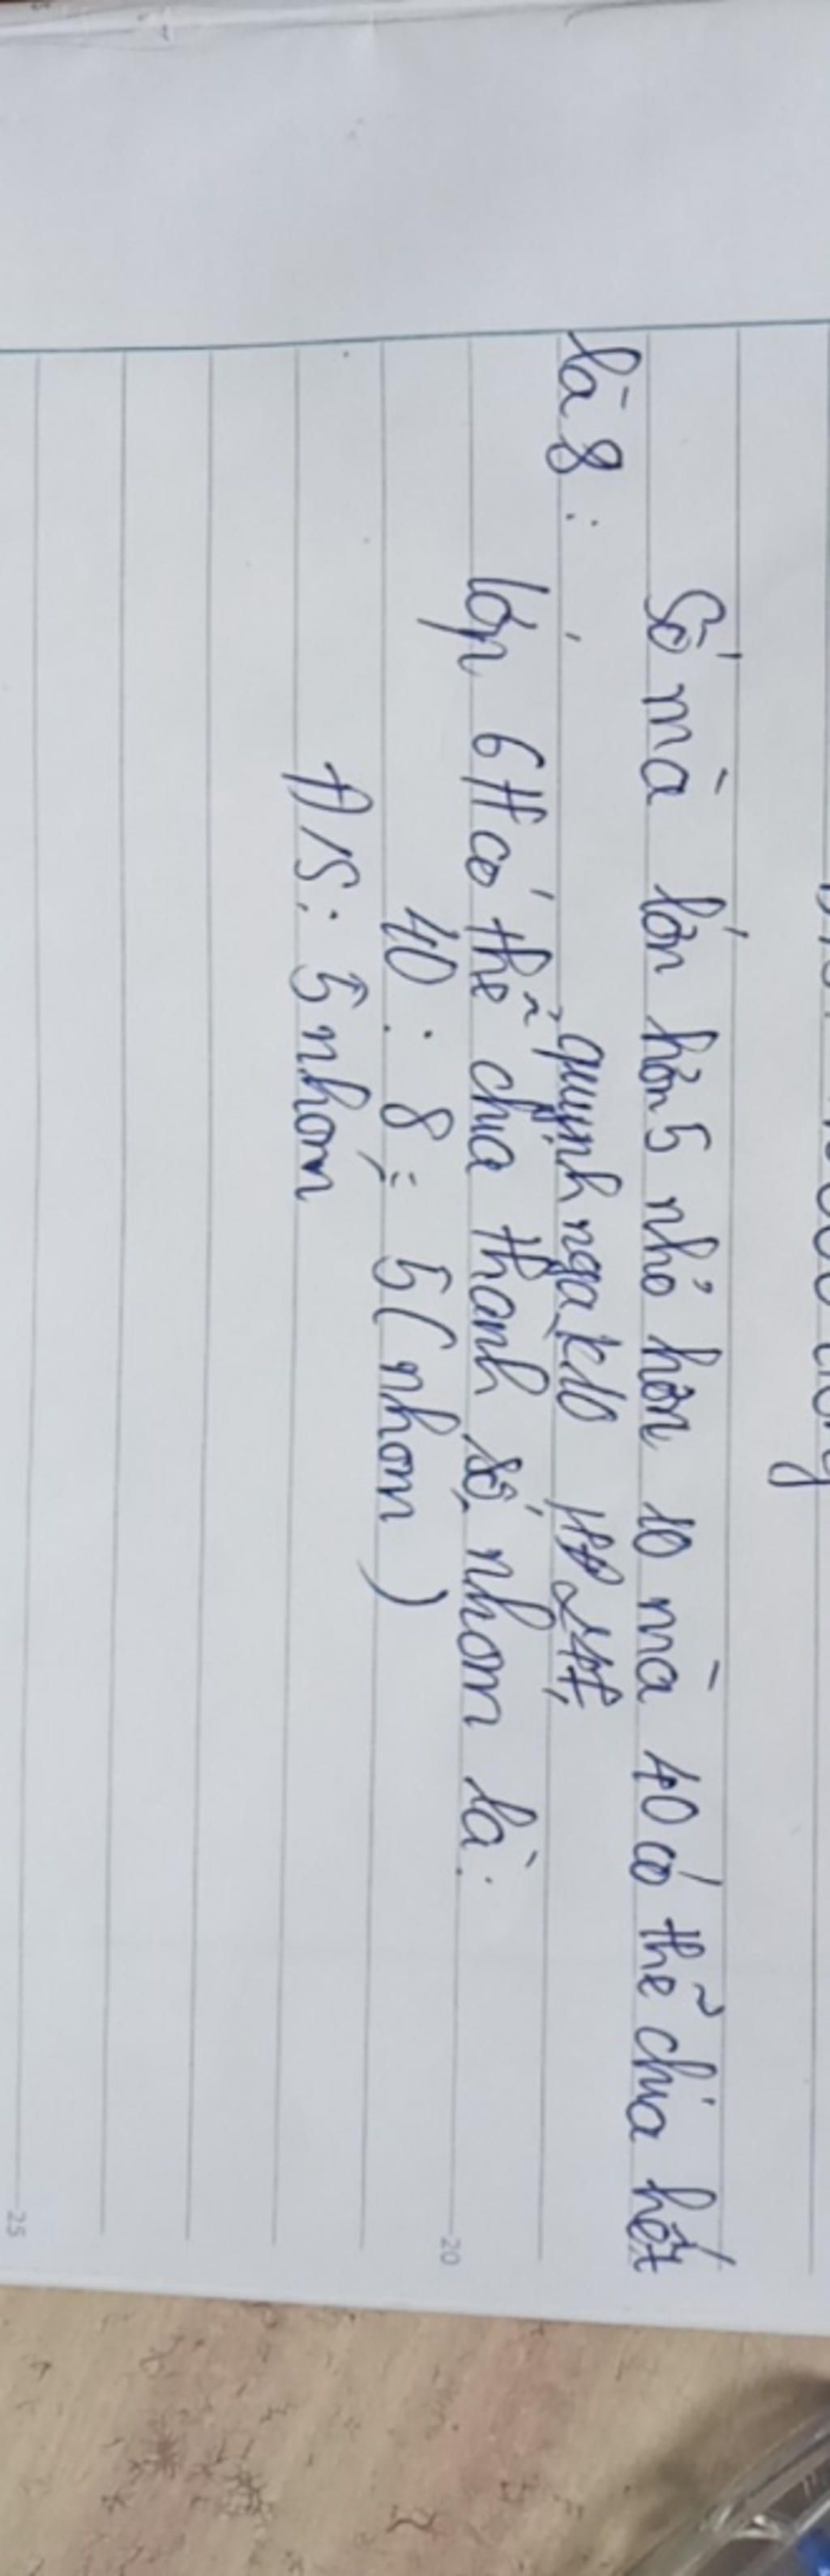 Số mà lớn hơn 5 nhỏ hơn 10 mà 40 có thể chia hết
là 8:
quỳnh nga k10
lớp 6H có thể chia thanh số nhom là:
40 : 8 = 5 (nhom)
Đ/S: 5 nhom
20
25